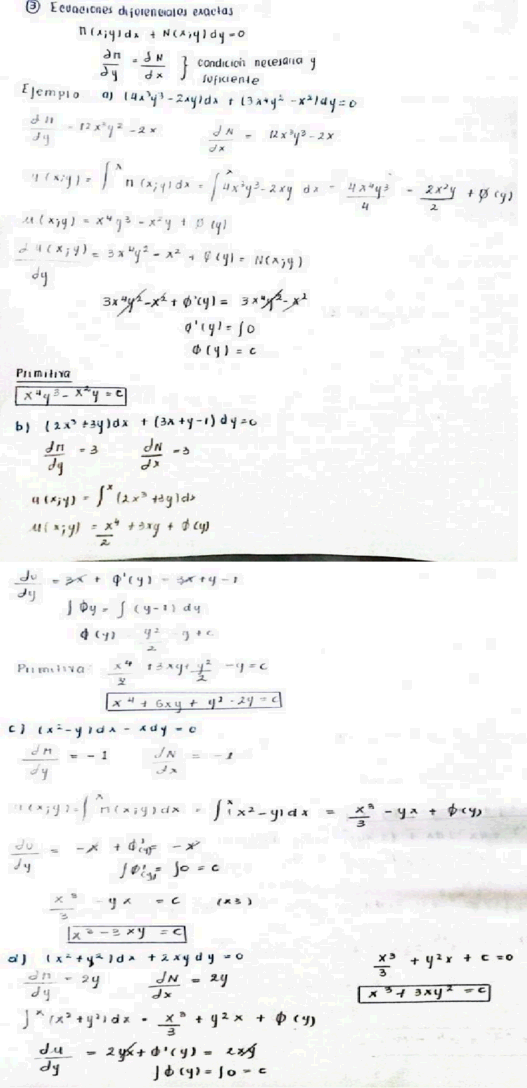 ③ Ecuaciones diferenciales exactas
M(x;y)dx + N(x;y)dy=0
∂M/∂y = ∂N/∂x } condición necesaria y suficiente
Ejemplo a) (4x³y³-2xy)dx + (3x⁴y²-x²)dy=0
∂M/∂y = 12x³y²-2x   ∂N/∂x = 12x³y²-2x
u(x;y) = ∫ˣ M(x;y)dx = ∫ˣ 4x³y³-2xy dx = 4x⁴y³/4 - 2x²y/2 + φ(y)
u(x;y) = x⁴y³ - x²y + φ(y)
∂u(x;y)/∂y = 3x⁴y² - x² + φ'(y) = N(x;y)
3x⁴y² - x² + φ'(y) = 3x⁴y² - x²
φ'(y) = ∫0
φ(y) = c
Primitiva
x⁴y³ - x²y = c
b) (2x³+3y)dx + (3x+y-1)dy=0
∂M/∂y = 3   ∂N/∂x = 3
u(x;y) = ∫ˣ (2x³+3y)dx
u(x;y) = x⁴/2 + 3xy + φ(y)
∂u/∂y = 3x + φ'(y) = 3x+y-1
∫φy = ∫(y-1)dy
φ(y) = y²/2 - y + c
Primitiva: x⁴/2 + 3xy + y²/2 - y = c
x⁴ + 6xy + y² - 2y = c
c) (x²-y)dx - xdy = 0
∂M/∂y = -1   ∂N/∂x = -1
u(x;y) = ∫ˣ M(x;y)dx = ∫ˣ (x²-y)dx = x³/3 - yx + φ(y)
∂u/∂y = -x + φ'(y) = -x
∫φ'(y) = ∫0 = c
x³/3 - yx = c   (x3)
x³ - 3xy = c
d) (x²+y²)dx + 2xydy = 0
∂M/∂y = 2y   ∂N/∂x = 2y
∫ˣ (x²+y²)dx = x³/3 + y²x + φ(y)
∂u/∂y = 2yx + φ'(y) = 2xy
∫φ(y) = ∫0 = c
x³/3 + y²x + c = 0
x³ + 3xy² = c